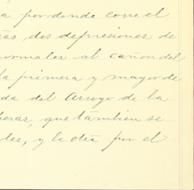 a por donde corre el
dos depresiones de
normales al cañon del
la primera y mayor de
da del Arroyo de la
eras, que tambien se
des, y la otra por el